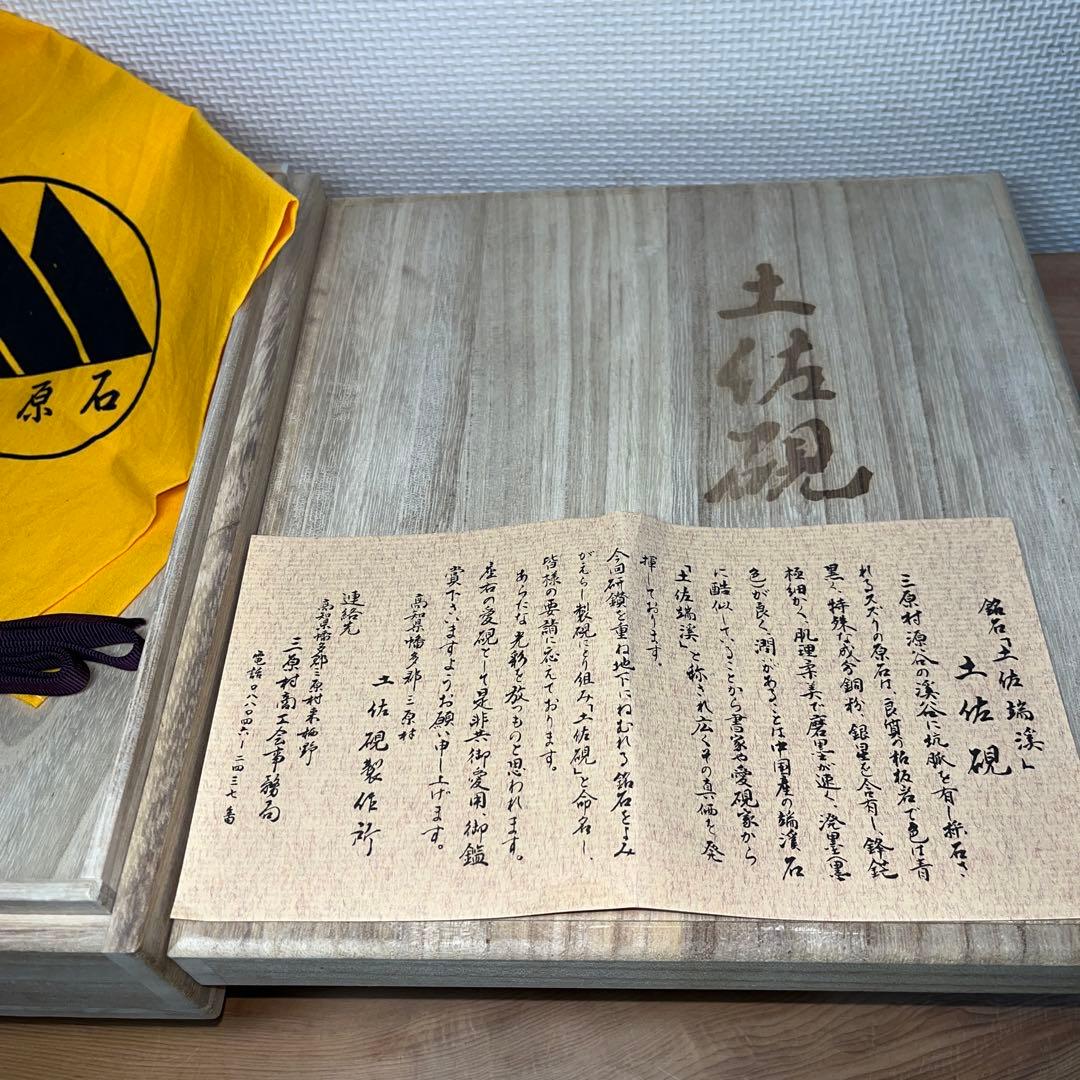 土佐硯
原石
銘石「土佐端渓」
土佐硯
三原村源谷の渓谷に坑脈を有し採石さ
れるスズリの原石は、良質の粘板岩で色は青
黒く、特殊な成分銅粉、銀星を含有し、鋒鋩
極細かく、肌理柔美で磨墨が速く、溌墨(墨
色)が良く潤があることは中国産の端渓石
に酷似していることから書家や愛硯家から
「土佐端渓」と称され広くその真価を発
揮しております。
今回研鑽を重ね地下にねむれる銘石をよみ
がえらし製硯にとり組み「土佐硯」と命名し、
皆様の要請に応えております。
あらたな光彩を放つものと思われます。
座右の愛硯として是非共御愛用、御鑑
賞下さいますようお願い申し上げます。
高知県幡多郡三原村
土佐硯製作所
連絡先
高知県幡多郡三原村来栖野
三原村商工会事務局
電話〇八八〇四六-二四三七番